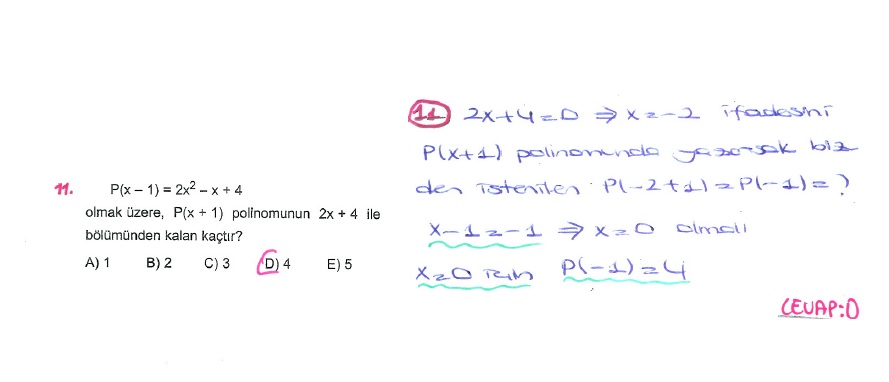 11. P(x – 1) = 2x² – x + 4
olmak üzere, P(x + 1) polinomunun 2x + 4 ile
bölümünden kalan kaçtır?
A) 1 B) 2 C) 3 D) 4 E) 5
11 2x+4=0 ⇒ x=-2 ifadesini
P(x+1) polinomunda yazarsak biz
den istenilen P(-2+1)=P(-1)=?
x-1=-1 ⇒ x=0 olmalı
x=0 için P(-1)=4
CEVAP:D